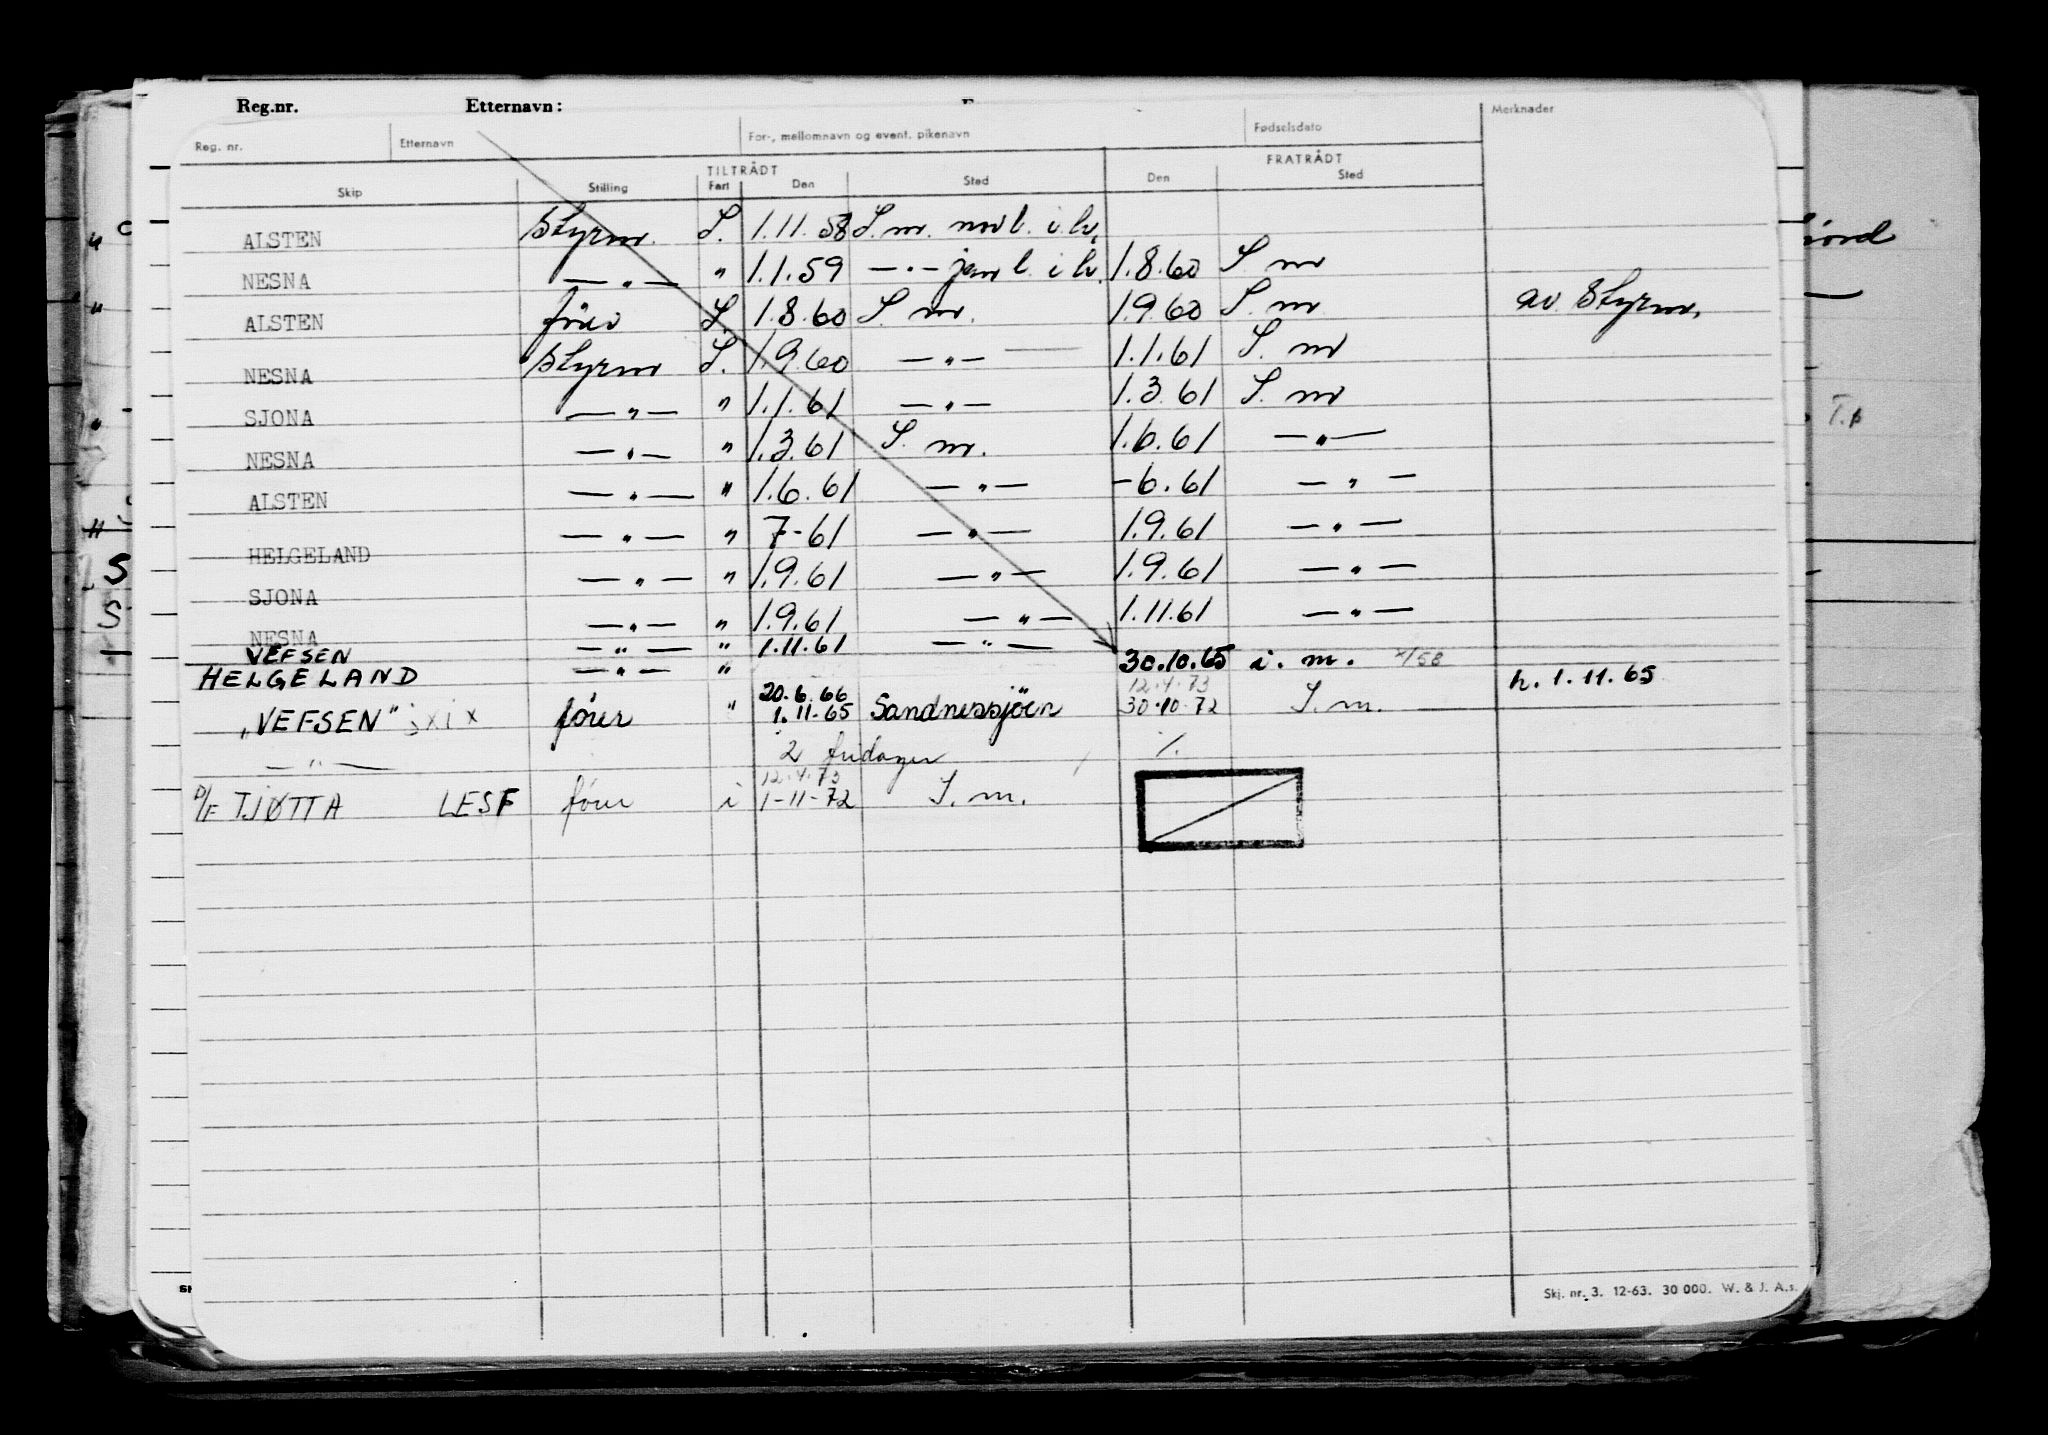 Reg.nr. Etternavn:
Reg. nr. Etternavn For-, mellomnavn og event. pikenavn Fødselsdato Merknader
TILTRÅDT FRATRÅDT
Skip Stilling Fart Den Sted Den Sted
ALSTEN Styrm. S. 1.11.58 S.m. novb. i.lv.
NESNA —"— " 1.1.59 —"— janb. i lv. 1.8.60 S. m
ALSTEN förer S. 1.8.60 S. m. 1.9.60 S. m av. Styrm.
NESNA Styrm S. 1.9.60 —"— 1.1.61 S. m
SJONA —"— " 1.1.61 —"— 1.3.61 S. m
NESNA —"— " 1.3.61 S. m. 1.6.61 —"—
ALSTEN —"— " 1.6.61 —"— -6.61 —"—
HELGELAND —"— " 7-61 —"— 1.9.61 —"—
SJONA —"— " 1.9.61 —"— 1.9.61 —"—
NESNA —"— " 1.9.61 —"— 1.11.61 —"—
VEFSEN —"— " 1.11.61 —"—
HELGELAND —"— " 30.10.65 i. m. x/58
20.6.66 12.4.73 h. 1.11.65
"VEFSEN" förer " 1.11-65 Sandnessjöen 30-10-72 S.m.
—"— 2 fridager %
12.4.73
D/F TJØTTA LESF förer i 1-11-72 S. m.
Skj. nr. 3. 12-63. 30 000. W. & J. A.s.